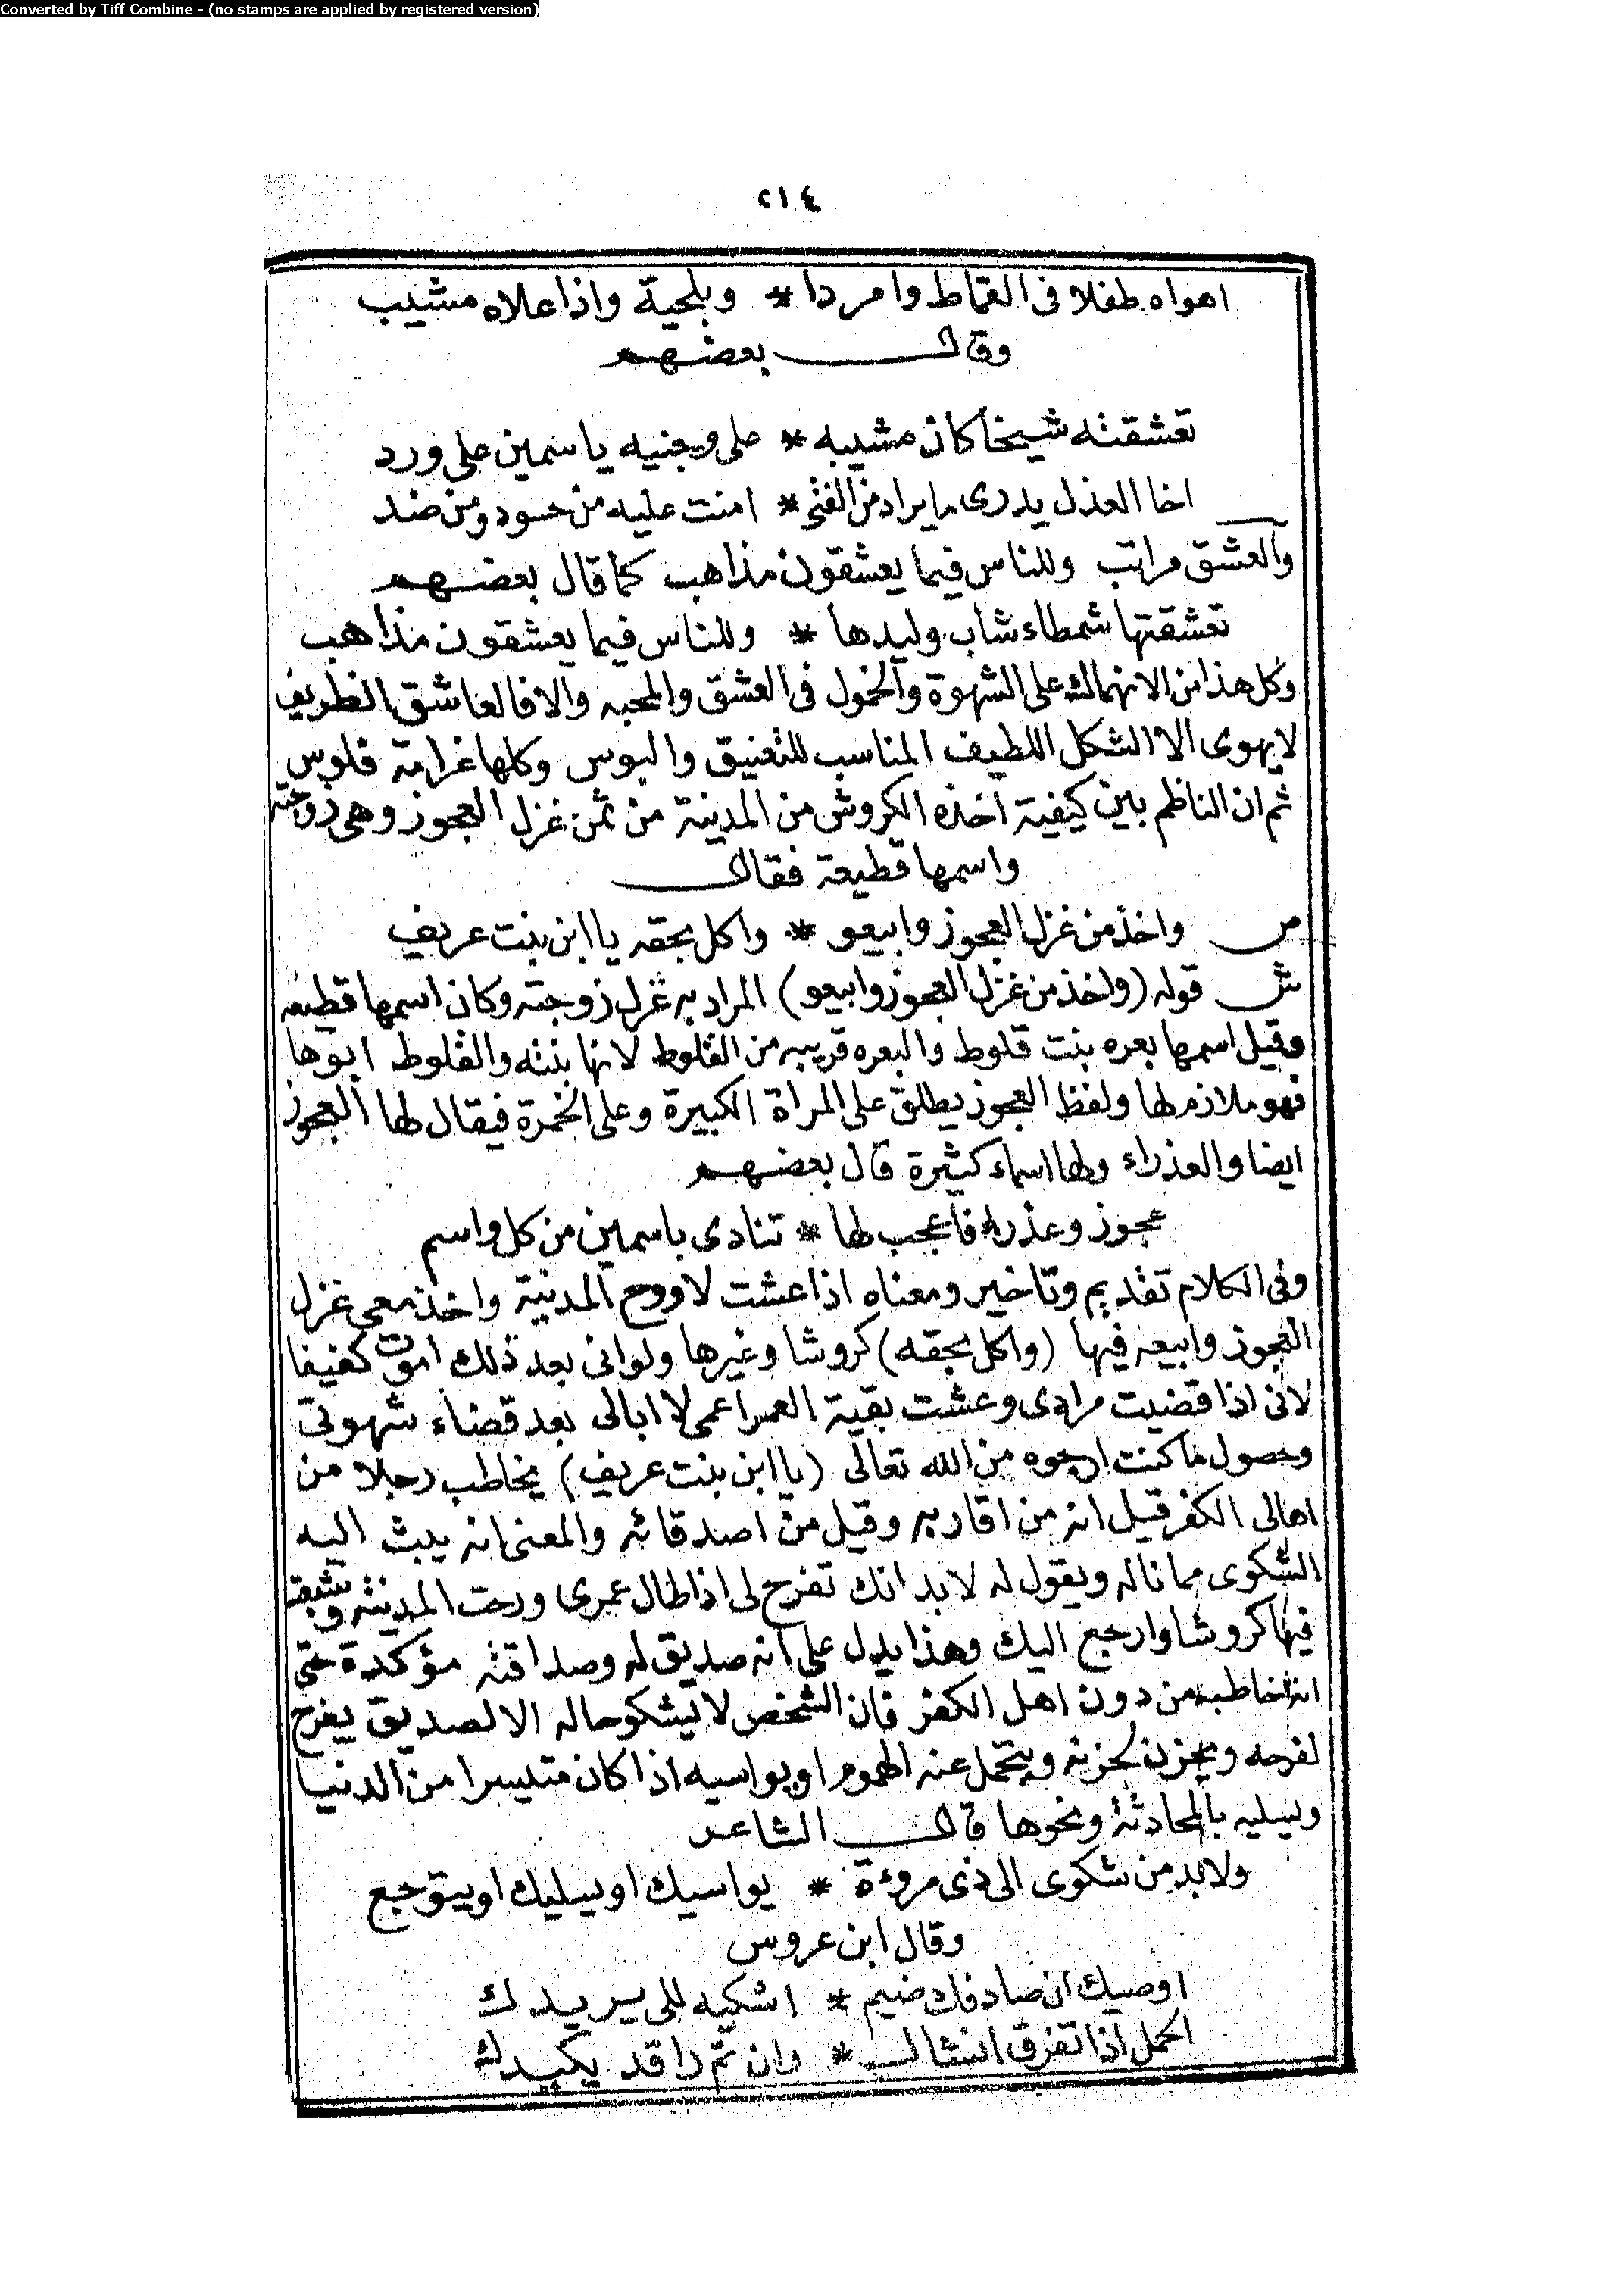 Converted by Tiff Combine - (no stamps are applied by registered version)
٢١٤
اهواه طفلا فى القماط وامردا * وبلحية واذا علاه مشيب
وقال بعضهم
تعشقته شيخا كان مشيبه * على وجنيه ياسمين على ورد
اخا العذل يدرى ما يراد من الفتى * امنت عليه من حسود ومن ضد
والعشق مراتب وللناس فيما يعشقون مذاهب كما قال بعضهم
تعشقتها شمطاء شاب وليدها * وللناس فيما يعشقون مذاهب
وكل هذا من الانهماك على الشهوة والخمول فى العشق والمحبه والا فالعاشق الظريف
لا يهوى الا الشكل اللطيف المناسب للتعنيق والبوس وكلها غرامة فلوس
ثم ان الناظم بين كيفية اخذه الكروش من المدينة من ثمن غزل العجوز وهى زوجته
واسمها قطيعة فقال
ص واخذ من غزل العجوز وابيعو * واكل بحقه يا ابن بنت عريف
ش قوله (واخذ من غزل العجوز وابيعو) المراد به غزل زوجته وكان اسمها قطيعه
وقيل اسمها بعره بنت قلوط والبعره قريبه من القلوط لانها بنته والقلوط ابوها
فهو ملازم لها ولفظ العجوز يطلق على المراة الكبيرة وعلى الخمرة فيقال لها العجوز
ايضا والعذراء ولها اسماء كثيرة قال بعضهم
عجوز وعذراء فاعجب لها * تنادى باسمين من كل واسم
وفى الكلام تقديم وتاخير ومعناه اذا عشت لاروح المدينة واخذ معى غزل
العجوز وابيعه فيها (واكل بحقه) كروشا وغيرها ولوانى بعد ذلك اموت كفيفا
لانى اذا قضيت مرادى وعشت بقية العمر اعمى لا ابالى بعد قضاء شهوتى
وحصول ما كنت ارجوه من الله تعالى (يا ابن بنت عريف) يخاطب رجلا من
اهالى الكفر قيل انه من اقاربه وقيل من اصدقائه والمعنى انه يبث اليه
الشكوى مما ناله ويقول له لا بد انك تفرح لى اذا طال عمرى ورحت المدينة وشبعت
فيها كروشا وارجع اليك وهذا يدل على انه صديق له وصداقته مؤكدة حتى
انه خاطبه من دون اهل الكفر فان الشخص لا يشكو حاله الا لصديق يفرح
لفرحه ويحزن لحزنه ويتحمل عنه الهموم او يواسيه اذا كان متيسرا من الدنيا
ويسليه بالمحادثة ونحوها قال الشاعر
ولا بد من شكوى الى ذى مروءة * يواسيك او يسليك او يتوجع
وقال ابن عروس
اوصيك ان صادفك ضيم * اشكيه للى يريدك
الحمل اذا تفرق انشال * وان تم راقد يكيدك